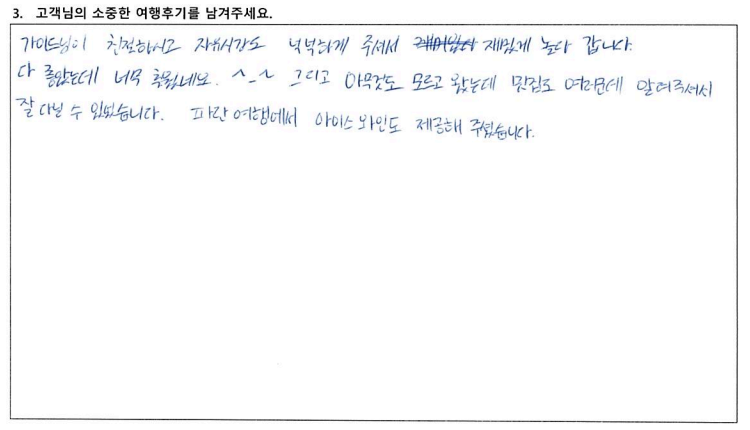 3. 고객님의 소중한 여행후기를 남겨주세요.
가이드님이 친절하시고 자유시간도 넉넉하게 주셔서 재밌게 놀다 갑니다.
다 좋았는데 너무 춥웠네요. ^_^ 그리고 아무것도 모르고 왔는데 맛집도 여러군데 알려주셔서
잘 다닐 수 있었습니다. 파란여행에서 아이스와인도 제공해 주셨습니다.